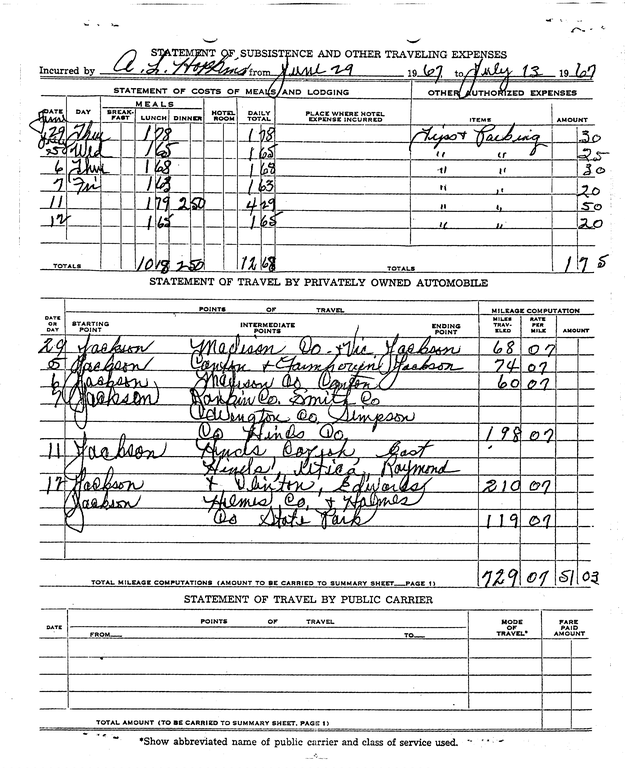 STATEMENT OF SUBSISTENCE AND OTHER TRAVELING EXPENSES
Incurred by A. L. Hopkins from June 29 1967 to July 13 1967
STATEMENT OF COSTS OF MEALS AND LODGING OTHER AUTHORIZED EXPENSES
DATE DAY MEALS HOTEL ROOM DAILY TOTAL PLACE WHERE HOTEL EXPENSE INCURRED ITEMS AMOUNT
BREAKFAST LUNCH DINNER
June
29 Thur 1 78 1 78 Tips & Parking 30
5 Wed 1 65 1 65 " " 25
6 Thur 1 68 1 68 " " 30
7 Fri 1 63 1 63 " " 20
11 1 79 2 50 4 29 " " 50
12 1 65 1 65 " " 20
TOTALS 10 18 2 50 12 68 TOTALS 1 75
STATEMENT OF TRAVEL BY PRIVATELY OWNED AUTOMOBILE
DATE OR DAY POINTS OF TRAVEL MILEAGE COMPUTATION
STARTING POINT INTERMEDIATE POINTS ENDING POINT MILES TRAVELED RATE PER MILE AMOUNT
29 Jackson Madison Co. + Vic. Jackson 68 07
5 Jackson Canton & Jackson 74 07
6 Jackson Madison Co Canton 60 07
7 Jackson Rankin Co. Smith Co
Covington Co. Simpson
Co Hinds Co. 198 07
11 Jackson Hinds East
Hinds, Utica, Raymond
12 Jackson + Clinton, Edwards 210 07
Jackson Holmes Co. & Holmes
Co State Park 119 07
TOTAL MILEAGE COMPUTATIONS (AMOUNT TO BE CARRIED TO SUMMARY SHEET__PAGE 1) 729 07 51 03
STATEMENT OF TRAVEL BY PUBLIC CARRIER
DATE POINTS OF TRAVEL MODE OF TRAVEL* FARE PAID AMOUNT
FROM__ TO__
TOTAL AMOUNT (TO BE CARRIED TO SUMMARY SHEET, PAGE 1)
*Show abbreviated name of public carrier and class of service used.